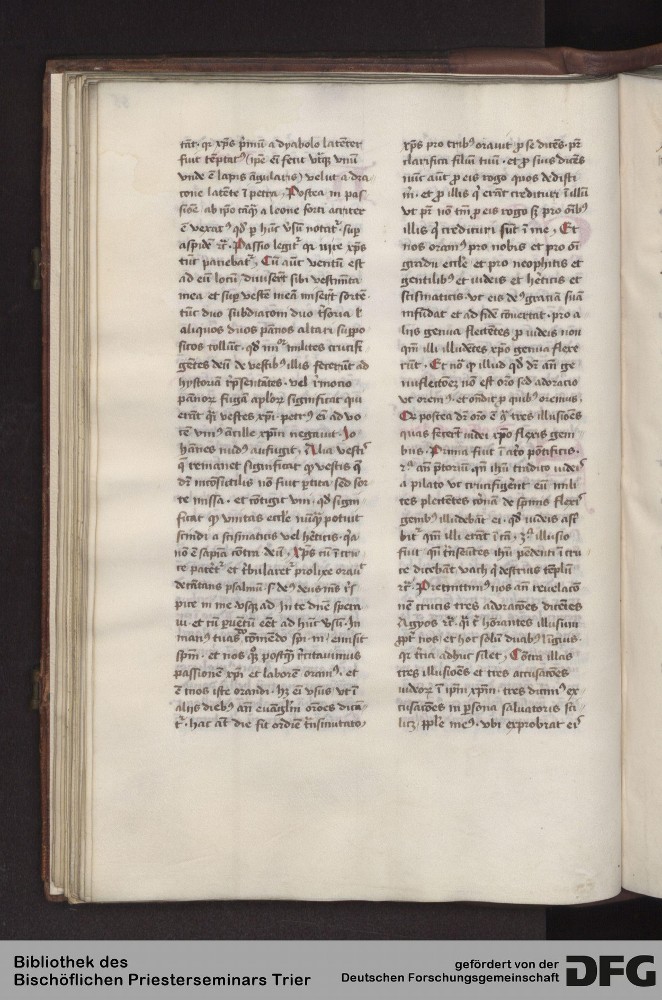 tāt · qr xp̄s p̄mū a dyabolo latēter
fuit tēptatꝰ (ip̄e ei fecit vtrq̄ vnū
vnde ē lapis āgularis) velut a dra
cone latēte ī petra · Postea in pas
sōe ab ip̄o tāq̄ a leone forti acriter
ē vexatꝰ qd p̄ hūc vsū notat᷑ · sup
aspidē ⁊c̄ · Passio legit᷑ qr iure xp̄s
tūc patiebat᷑ · Cū aūt ventū est
ad eū locū diuiserūt sibi vestimēta
mea et suꝑ vestē meā miserūt sortē ·
tūc duo subdiaconi duo
aliquos duos pānos altari suppo
sitos tollūt · qd milites crucifi
gētes deū de vestibꝰ illis fecerūt ad
hystoriā rp̄sentātes · vel remotio
pānorū fugā aplorū significat qui
erāt q̄i vestes xp̄i · petrꝰ ei ad vo
cē vniꝰ ācille xp̄m negauit · Jo
hānes nudꝰ aufugit · Alia vestis
q̄ remanet significat ꝙ vestis q̄
dr̄ incōsutilis nō fuit ꝑtita · sed sor
te missa · et cōtigit vni · qd signi
ficat ꝙ vnitas eccl̄e nūq̄ potuit
scindi a scismaticis vel h̄eticis · q̄a
nō ē sapiā cōtra deū · Xp̄s cū ī cru
ce patēt᷑ et t̄bularet᷑ prolixe orauit
decātans psalmū · s · deꝰ deus mꝰ rs
pice in me vsq̄ ad In te dn̄e spera
ui · et eū ꝓuectū eēt ad hūc vsū · In
manꝰ tuas cōmēdo sp̄m · m · emisit
spm̄ · et nos q̄ꝫ postq̄ recitauimus
passionē xp̄i et laborē oramꝰ · et
ē mos iste orandi · hꝫ ei vsus vt ī
aliis diebꝰ an̄ euāgl̄m oroēs dicā
t᷑ · hac aūt die sit ordīe trāsmutato
xp̄s pro tribꝰ orauit ꝓ se dicēs · pr̄
clarifica filiū tuū · et ꝓ suis dicēs
nūc aūt ꝓ eis rogo quos dedisti
m̄ · et ꝓ illis q̄ erāt credituri ī illū
vt pr̄ nō tm̄ ꝓ eis rogo sꝫ pro oībꝰ
illis q̄ credituri sūt ī me · Et
nos oramꝰ pro nobis et pro oī
gradu eccl̄e et pro neophitis et
gentilibꝰ et iudeis et h̄eticis et
scismaticis · vt eis deꝰ gratiā suā
infūdat et ad fidē cōuertat · pro a
liis genua flectētes ꝓ iudeis non
qm̄ illi illudētes xp̄o genua flexe
rūt · Et nō ꝙ illud qd dr̄ an̄ ge
nuflectōeꝫ nō est or̄o sed adoratio
vt oremꝰ · et ondit ꝓ quibꝰ oremus ·
Qr postea dr̄ or̄o ē ⁊ tres illusiōes
quas fecerūt iudei xp̄o flexis geni
bus · Prima fuit ī atō pōtificis ·
2ᵃ an̄ p̄toriū qn̄ ihm̄ tradito iudeis
a pilato vt crucifigerēt eū mili
tes plectētes coronā de spinis flexis
genibꝰ illudebāt ei · qd iudeis ascri
bit᷑ qm̄ illi erāt ī cā · 3ᵃ illusio
fuit qn̄ trāseūtes ihū pēdenti ī cru
ce dicebāt vach q̄ destruis tēplū
⁊c̄ · Premittimꝰ nos an̄ reuelacō
nē crucis tres adoracōes dicētes
Agyos ⁊c̄ · q̄i t̄ honorantes illusum
ꝓpt̄ nos · et hoc solū duabꝰ liguis ·
qr tercia adhuc silet · Cōtra illas
tres illusiōes et tres accusacōes
iudeorꝫ ī ipm̄ xp̄m · tres dicimꝰ ex
cusacōes in ꝑsona saluatoris sci
licꝫ · ppl̄e meꝰ · vbi exprobrat eis
Bibliothek des
Bischöflichen Priesterseminars Trier
gefördert von der
Deutschen Forschungsgemeinschaft
DFG